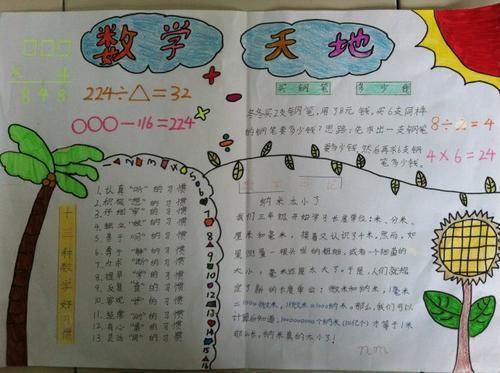 数学
天地
□□□
× 4
848
224÷△=32
○○○-116=224
买钢笔 多少钱
冬冬买2支钢笔,用了8元钱,买6支同样
的钢笔要多少钱?思路:先求出一支钢笔
要多少钱,然后再求6支钢
笔多少钱。
8÷2=4
4×6=24
十三种数学好习惯
1.认真“听”的习惯
2.积极“想”的习惯
3.仔细“审”的习惯
4.独立“做”的习惯
5.善于“问”的习惯
6.勇于“辩”的习惯
7.力求“断”的习惯
8.提早“学”的习惯
9.反复“查”的习惯
10.客观“评”的习惯
11.经常“动”的习惯
12.有心“集”的习惯
13.灵活“用”的习惯
数学日记
纳米太小了
我们三年级开始学习长度单位:米、分米、
厘米和毫米,接着又认识了千米。然而,如
果测量一根头发的粗细,或者一个细菌的
大小,毫米还是太大了。于是,人们就规
定了新的长度单位:微米和纳米,1毫米
=1000微米,1微米=1000纳米。那么,我们可以
计算后知道,1000000000个纳米(10亿个)才等于1米
那么长,纳米真的太小了!
nm